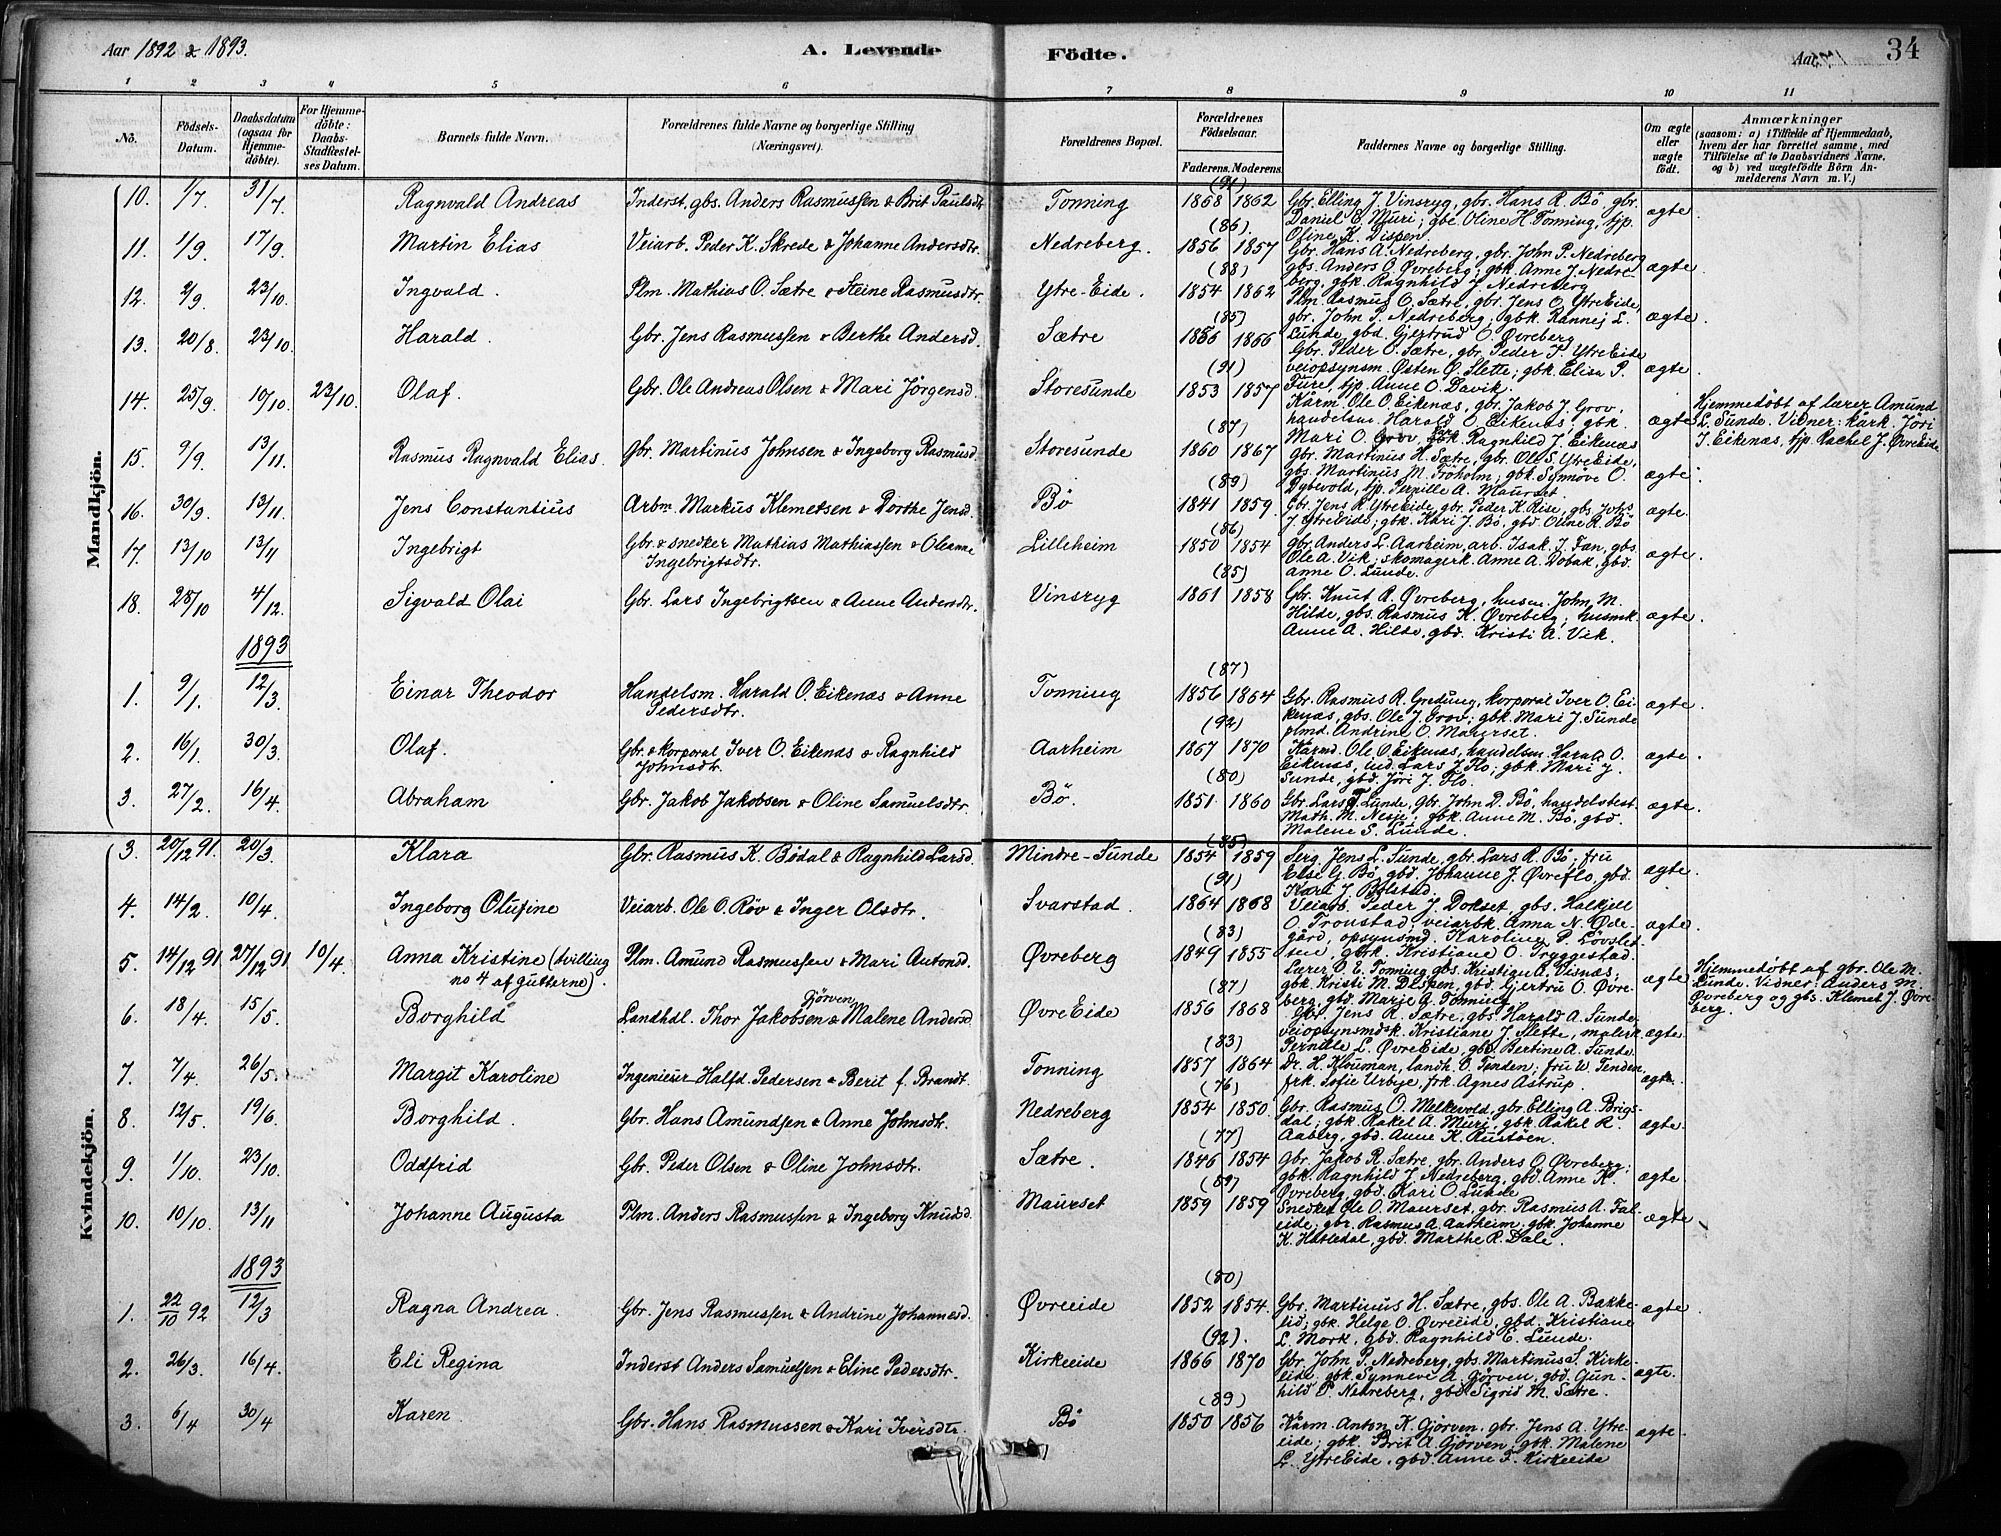 Aar 1892 & 1893.
A. Levende Födte.
Aar
34
1 2 3 4 5 6 7 8 9 10 11
No.
Födsels-Datum.
Daabsdatum (ogsaa for Hjemme-döbte).
For Hjemme-döbte: Daabs-Stadfæstel-ses Datum.
Barnets fulde Navn.
Forældrenes fulde Navne og borgerlige Stilling (Næringsvei).
Forældrenes Bopæl.
Forældrenes Födselsaar. Faderens. Moderens.
Faddernes Navne og borgerlige Stilling.
Om ægte eller uægte födt.
Anmærkninger (saasom: a) i Tilfælde af Hjemmedaab, hvem der har forrettet samme, med Tilföielse af to Daabsvidners Navne, og b) ved uægtefödte Börn Anmelderens Navn m. V.)
Mandkjön.
10. 1/7 31/7. Ragnvald Andreas Inderst, gbs. Anders Rasmussen & Brit Paulsdtr. Tonning (91) 1868 1862 Gbr. Elling J. Vinsryg, gbr. Hans R. Bö gbr. Daniel E. Muri; gbk. Oline H. Tonning, tjp. Oline K. Dispen ægte.
11. 1/9 17/9. Martin Elias Veiarb. Peder K. Skrede & Johanne Andersdtr. Nedreberg. (86) 1856 1857 Gbr. Hans A. Nedreberg, gbr. John P. Nedreberg gbs. Anders O. Øvreberg; gbk. Anne J. Nedreberg, gbk. Ragnhild J. Nedreberg ægte.
12. 2/9. 23/10. Ingvald. Plm. Mathias O. Sætre & Steine Rasmusdtr. Ytre-Eide. (88) 1854 1862 Plm. Rasmus O. Sætre, gbr. Jens O. YtreEide, gbr. John P. Nedreberg, gbk. Rannej L. Lunde, gbd. Gjertrud O. Øvreberg ægte.
13. 20/8. 23/10. Harald. Gbr. Jens Rasmussen & Berthe Andersd. Sætre (85) 1856 1866 Gbr. Peder O. Sætre, gbr. Peder J. YtreEide veiopsynsm. Østen Ø. Slette; gbk. Elisa P. Fure, tjp. Anne O. Davik. ægte.
14. 25/9. 10/10. 23/10. Olaf. Gbr. Ole Andreas Olsen & Mari Jörgensd. Storesunde (91) 1853 1857 Kårm. Ole O. Eikenæs, gbr. Jakob J. Grov, handelsm. Harald O. Eikenæs, gbk. Mari O. Grov, gbk. Ragnhild J. Eikenæs ægte Hjemmedöbt af lærer Amund L. Sunde. Vidner: kårk. Jöri J. Eikenæs, tjp. Rachel J. ØvreEide
15. 9/9. 13/11. Rasmus Ragnvald Elias. Gbr. Martinus Johnsen & Ingeborg Rasmusd. Storesunde (87) 1860 1867 Gbr. Martinus H. Sætre, gbr. Ole S. YtreEide, gbs. Martinus M. Fröholm; gbk. Synnöve O. Dybevold, tjp. Pernille A. Maurset. ægte.
16. 30/9. 13/11. Jens Constantius Arbm. Markus Klemetsen & Dorthe Jensd. Bö (89) 1841 1859. Gbr. Jens R. YtreEide, gbr. Peder K. Rise, gbs. Johs. J. YtreEide; gbk. Kari J. Bö, gbd. Oline R. Bö ægte.
17. 13/10 13/11 Ingebrigt Gbr. & snedker Mathias Mathiassen & Oleanne Ingebrigtsdtr. Lilleheim (86) 1850 1854 Gbr. Anders L. Aarheim, arb. Isak J. Fæn, gbs. Ole A. Vik; skomagerk. Anne A. Dobak, gbd. Anne O. Lunde. ægte.
18. 28/10 4/12. Sigvald Olai Gbr. Lars Ingebrigtsen & Anne Andersdtr. Vinsryg (85) 1861 1858 Gbr. Knut R. Øvreberg, husm. John M. Hilde, gbs. Rasmus K. Øvreberg; husmk. Anne A. Hilde, gbd. Kristi A. Vik. ægte.
1893
1. 9/1. 12/3. Einar Theodor Handelsm. Harald O. Eikenæs & Anne Pedersdtr. Tonning (87) 1856 1864 Gbr. Rasmus R. Gredung, korporal Iver O. Eikenæs, gbs. Ole J. Grov; gbk. Mari J. Sunde plmd. Andrine O. Maurset. ægte.
2. 16/1. 30/3. Olaf. Gbr. & korporal Iver O. Eikenæs & Ragnhild Johnsdtr. Aarheim (92) 1867 1870 Kårmd. Ole O. Eikenæs, handelsm. Harald O. Eikenæs, ind. Lars J. Flo; gbk. Mari J. Sunde, gbd. Jöri J. Flo. ægte.
3. 27/2. 16/4. Abraham Gbr. Jakob Jakobsen & Oline Samuelsdtr. Bö. (80) 1851 1860 Gbr. Lars J. Lunde, gbr. John D. Bö, handelsbest. Math. M. Nesje; gbk. Anne M. Bö, gbd. Malene S. Lunde. ægte.
Kvindekjön.
3. 20/12 91. 20/3. Klara Gbr. Rasmus K. Bödal & Ragnhild Larsd. Mindre-Sunde (85) 1854 1859 Serg. Jens L. Sunde, gbr. Lars R. Bö; fru Else G. Bö, gbd. Johanne J. Øvreflo, gbd. Kari J. Bolstad. ægte.
4. 14/2. 10/4. Ingeborg Olufine Veiarb. Ole O. Röv & Inger Olsdtr. Svarstad. (91) 1864 1868 Veiarb. Peder J. Dokset, gbs. Halkjell O. Tronstad; veiarbk. Anna N. Ødegård, opsynsmd. Karoline P. Lövsletten, gbrk. Kristiane O. Tryggestad. ægte.
5. 14/12 91 27/12 91 10/4. Anna Kristine (tvilling no 4 af gutterne). Plm. Amund Rasmussen & Mari Antonsd. Øvreberg (83) 1849 1855 Lærer O. E. Tonning, gbs. Kristian A. Visnæs; gbk. Kristi M. Dispen, gbd. Gjertru O. Øvreberg, gbd. Marie A. Tonning ægte Hjemmedöbt af gbr. Ole M. Lunde. Vidner: Anders M. Øvreberg og gbs. Klemet J. Øvreberg.
6. 18/4. 15/5. Borghild Landhdl. Thor Jakobsen Gjörven & Malene Andersd. ØvreEide (87) 1856 1868 Gbr. Jens R. Sætre, gbs. Harald A. Sunde veiopsynsmdsk. Kristiane J. Slette, malerk. Pernille L. ØvreEide, gbd. Bertine A. Sunde ægte.
7. 7/4. 26/5. Margit Karoline Ingeniør Halfd. Pedersen & Berit f. Brandt. Tonning (83) 1857 1864 Dr. H. Klouman, landh. O. Tenden; fru W. Tenden, frk. Sofie Urbye, frk. Agnes Astrup. ægte.
8. 12/5. 19/6. Borghild. Gbr. Hans Amundsen & Anne Johnsdtr. Nedreberg (76) 1854 1850. Gbr. Rasmus O. Melkevold, gbr. Elling A. Brigsdal; gbk. Rakel A. Muri, gbk. Rakel R. Aaberg, gbd. Anne K. Rustöen. ægte.
9. 1/10. 23/10. Oddfrid Gbr. Peder Olsen & Oline Johnsdtr. Sætre. (77) 1846 1854 Gbr. Jakob R. Sætre, gbr. Anders O. Øvreberg; gbk. Ragnhild J. Nedreberg, gbd. Anne K. Øvreberg, gbd. Kari O. Lunde ægte.
10. 10/10. 13/11 Johanne Augusta Plm. Anders Rasmussen & Ingeborg Knudsd. Maurset (89) 1859 1859 Snedker Ole O. Maurset, gbr. Rasmus A. Faleide; gbr. Rasmus A. Aarheim; gbk. Johanne K. Hatledal, gbd. Marthe R. Dale. ægte
1893
1. 22/10 92 12/3 Ragna Andrea. Gbr. Jens Rasmussen & Andrine Johannesd. Øvreeide (80) 1852 1854. Gbr. Martinus H. Sætre, gbs. Ole A. Bakkelid; gbk. Helge O. Øvreeide, gbd. Kristiane L. Mork, gbd. Ragnhild E. Lunde. ægte.
2. 26/3. 16/4. Eli Regina Inderst Anders Samuelsen & Eline Pedersdtr. Kirkeeide (92). 1866 1870 Gbr. John P. Nedreberg, gbs. Martinus S. Kirkeeide; gbk. Synneve A. Gjörven, gbd. Gunhild P. Nedreberg, gbd. Sigrid M. Sætre. ægte.
3. 6/4 30/4 Karen. Gbr. Hans Rasmussen & Kari Iversdtr. Bö (89) 1850 1856 Kårm. Anton K. Gjörven, gbr. Jens A. Ytreeide; gbk. Brit A. Gjörven, gbk. Malene L. YtreEide, gbd. Anne T. Kirkeeide ægte